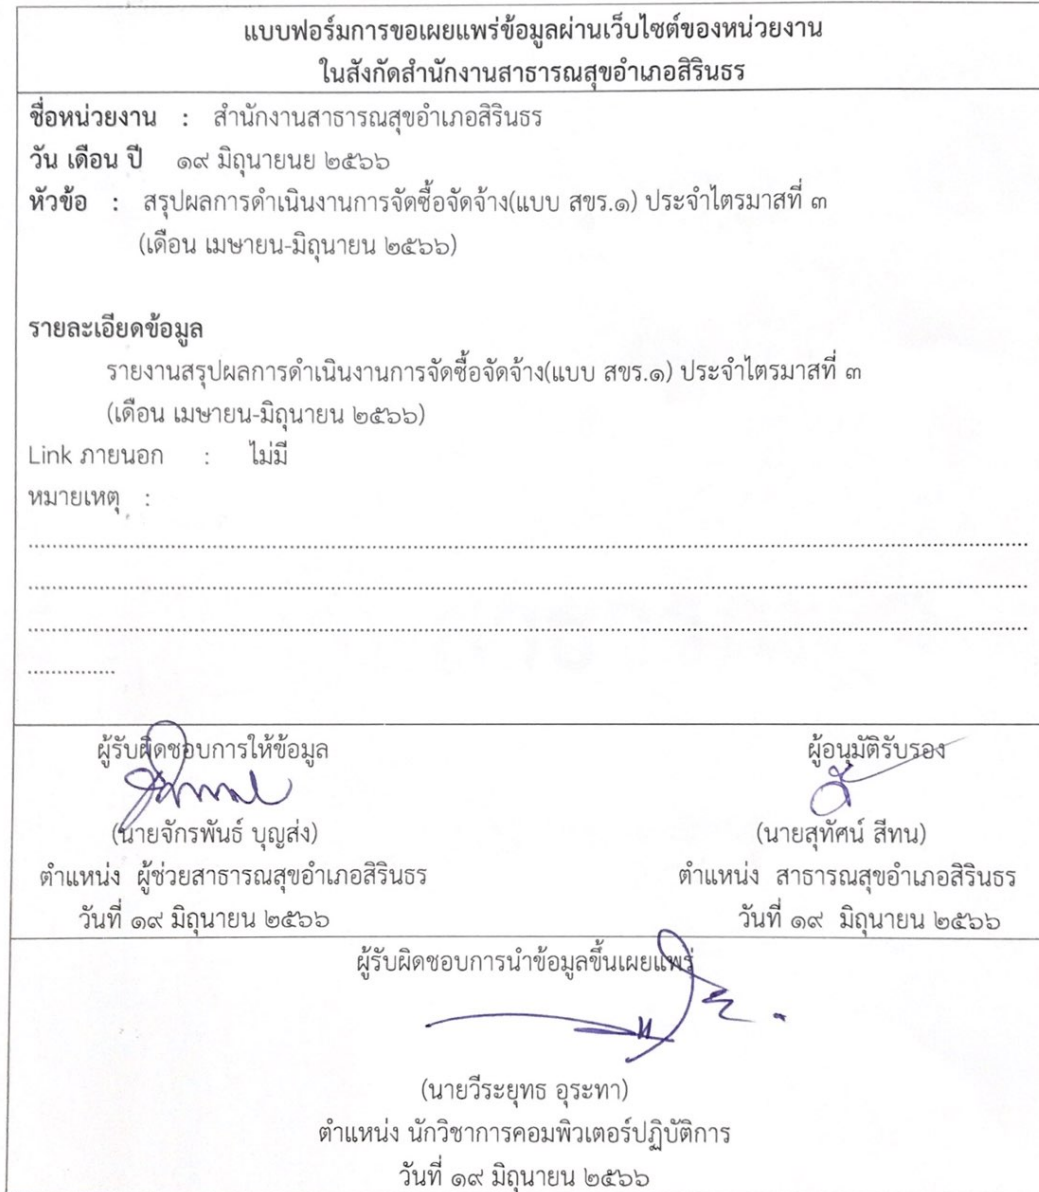 แบบฟอร์มการขอเผยแพร่ข้อมูลผ่านเว็บไซต์ของหน่วยงาน
ในสังกัดสำนักงานสาธารณสุขอำเภอสิรินธร
ชื่อหน่วยงาน : สำนักงานสาธารณสุขอำเภอสิรินธร
วัน เดือน ปี ๑๙ มิถุนายนย ๒๕๖๖
หัวข้อ : สรุปผลการดำเนินงานการจัดซื้อจัดจ้าง(แบบ สขร.๑) ประจำไตรมาสที่ ๓
(เดือน เมษายน-มิถุนายน ๒๕๖๖)
รายละเอียดข้อมูล
รายงานสรุปผลการดำเนินงานการจัดซื้อจัดจ้าง(แบบ สขร.๑) ประจำไตรมาสที่ ๓
(เดือน เมษายน-มิถุนายน ๒๕๖๖)
Link ภายนอก : ไม่มี
หมายเหตุ :
ผู้รับผิดชอบการให้ข้อมูล
(นายจักรพันธ์ บุญส่ง)
ตำแหน่ง ผู้ช่วยสาธารณสุขอำเภอสิรินธร
วันที่ ๑๙ มิถุนายน ๒๕๖๖
ผู้อนุมัติรับรอง
(นายสุทัศน์ สีทน)
ตำแหน่ง สาธารณสุขอำเภอสิรินธร
วันที่ ๑๙ มิถุนายน ๒๕๖๖
ผู้รับผิดชอบการนำข้อมูลขึ้นเผยแพร่
(นายวีระยุทธ อุระทา)
ตำแหน่ง นักวิชาการคอมพิวเตอร์ปฏิบัติการ
วันที่ ๑๙ มิถุนายน ๒๕๖๖